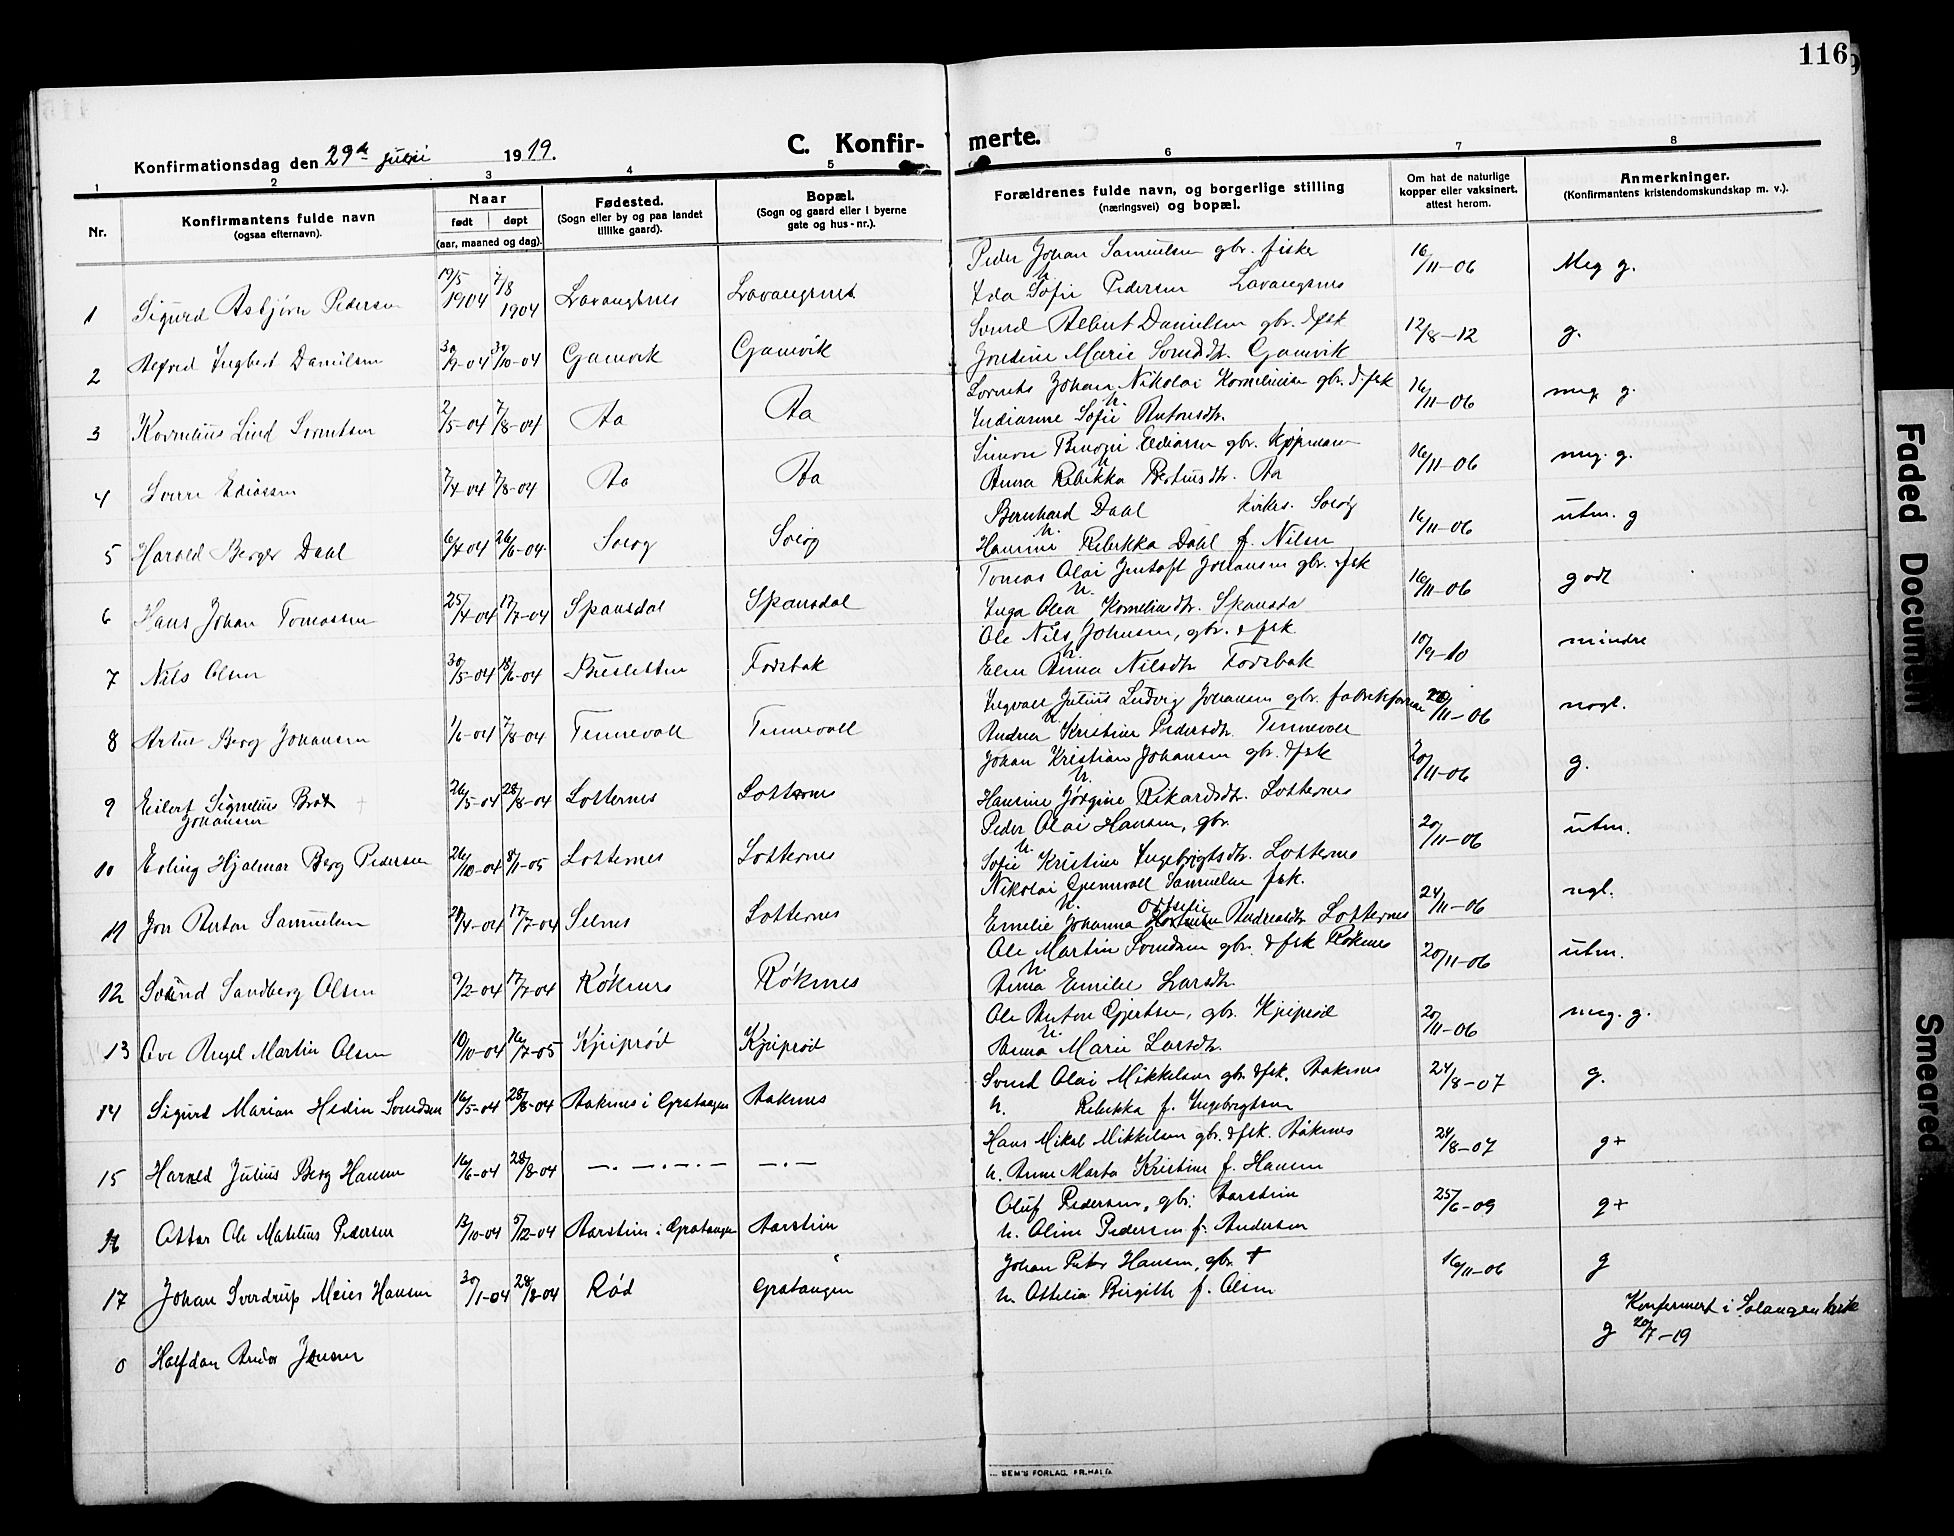 116
Konfirmationsdag den 29de juni 1919.
C. Konfirmerte.
1 2 3 4 5 6 7 8
Nr.
Konfirmantens fulde navn
(ogsaa efternavn).
Naar
født døpt
(aar, maaned og dag).
Fødested.
(Sogn eller by og paa landet
tillike gaard).
Bopæl.
(Sogn og gaard eller i byerne
gate og hus-nr.).
Forældrenes fulde navn, og borgerlige stilling
(næringsvei) og bopæl.
Om hat de naturlige
kopper eller vaksinert.
attest herom.
Anmerkninger.
(Konfirmantens kristendomskundskap m. v.).
Peder Johan Samuelsen gbr. fisker 16/11-06 Meg g.
1 Sigurd Asbjørn Pedersen 19/5 1904 7/8 1904 Lavangsnes Lavangsnes u. Ida Sofie Pedersen Lavangsnes
Svend Albert Danielsen gbr. & fsk 12/8-12 g.
2 Alfred Ingbert Danielsen 04 30/10-04 Gamvik Gamvik Jentine Marie Svendsdtr. Gamvik
Lorents Johan Nikolai Korneliussen gbr. & fsk 16/11-06 meg g.
3 Kornelius Lind Lorentsen 2/5-04 7/8-04 Aa Aa u. Indianne Sofie Antonsdtr.
Simon Benoni Ediassen gbr. kjøpmann 16/11-06 meg. g.
4 Sverre Ediassen 7/4-04 7/8-04 Aa Aa u. Anna Rebekka Bertinsdtr. Aa
Bernhard Dahl kirkes. Soløy 16/11-06 utm. g
5 Harald Berger Dahl 6/4-04 26/6-04 Soløy Soløy u. Hammine Rebekka Dahl f. Nilsen
Tomas Olai Gustaft Johansen gbr. & fsk 16/11-06 godt
6 Hans Johan Tomassen 25/4-04 17/7-04 Spansdal Spansdal u. Inga Olea Korneliusdtr. Spansdal
Ole Nils Johnsen, gbr. & fsk. 10/9-10 mindre
7 Nils Olsen 30/5-04 18/6-04 Fosbak u. Elen Anna Nilsdtr. Fosbak
Ingvald Julius Ludvig Johansen gbr. 20/11-06 nogl.
8 Artur Berg Johansen 1/6-04 7/8-04 Tennevoll Tennevoll u. Andrea Kristine Pedersdtr. Tennevoll
Johan Kristian Johansen gbr. & fsk 20/11-06 g.
9 Eilert Signelius Brox 26/5-04 28/8-04 Lotternes Lotternes u. Hansine Jørgine Rikardsdtr. Lotternes
Johansen
Peder Olai Hansen, gbr. 20/11-06 utm.
10 Erling Hjalmar Berg Pedersen 26/10-04 8/1-05 Lotternes Lotternes u. Sofie Kristine Ingebrigtsdtr. Lotternes
Nikolai Grønvoll Samuelsen fsk. 24/11-06 ngl.
11 Jon Anton Samuelsen 28/4-04 17/7-04 Selnes Lotternes u. Emelie Johanna Ottelie Andreasdtr. Lotternes
Ole Martin Svendsen gbr. & fsk Røknes 20/11-06 utm.
12 Svend Sandberg Olsen 9/2-04 17/7-04 Røknes Røknes u. Anna Emilie Larsdtr.
Ole Anton Gjertsen, gbr. Kjeiprød 20/11-06 meg. g.
13 Ove Angel Martin Olsen 10/10-04 16/7-05 Kjeiprød Kjeiprød u. Anna Marie Larsdtr.
Svend Olai Mikkelsen gbr. & fsk. Aaknes 24/8-07 g.
14 Sigurd Marian Hedin Svendsen 16/5-04 28/8-04 Aaknes i Gratangen Aaknes u. Rebekka f. Ingebrigtsen
Hans Mikal Mikkelsen gbr. & fsk. Aaknes 24/8-07 g+
15 Harald Julius Berg Hansen 16/6-04 28/8-04 —.—.—.— —.— u. Anne Marta Kristine f. Hansen
Oluf Pedersen, gbr. Aarstein 25/6-09 g+
16 Ottar Ole Matelius Pedersen 13/10-04 5/12-04 Aarstein i Gratangen Aarstein u. Oline Pedersen f. Andersen
Johan Peter Hansen, gbr. † 16/11-06 g
17 Johan Sverdrup Meier Hansen 30/1-04 28/8-04 Rød Gratangen u. Ottelia Birgitte f. Olsen
Konfirmert i Salangen kirke
0 Halfdan Andor Jensen g 20/7-19
SEM'S FORLAG. FR.HALD.
Faded Document
Smeared